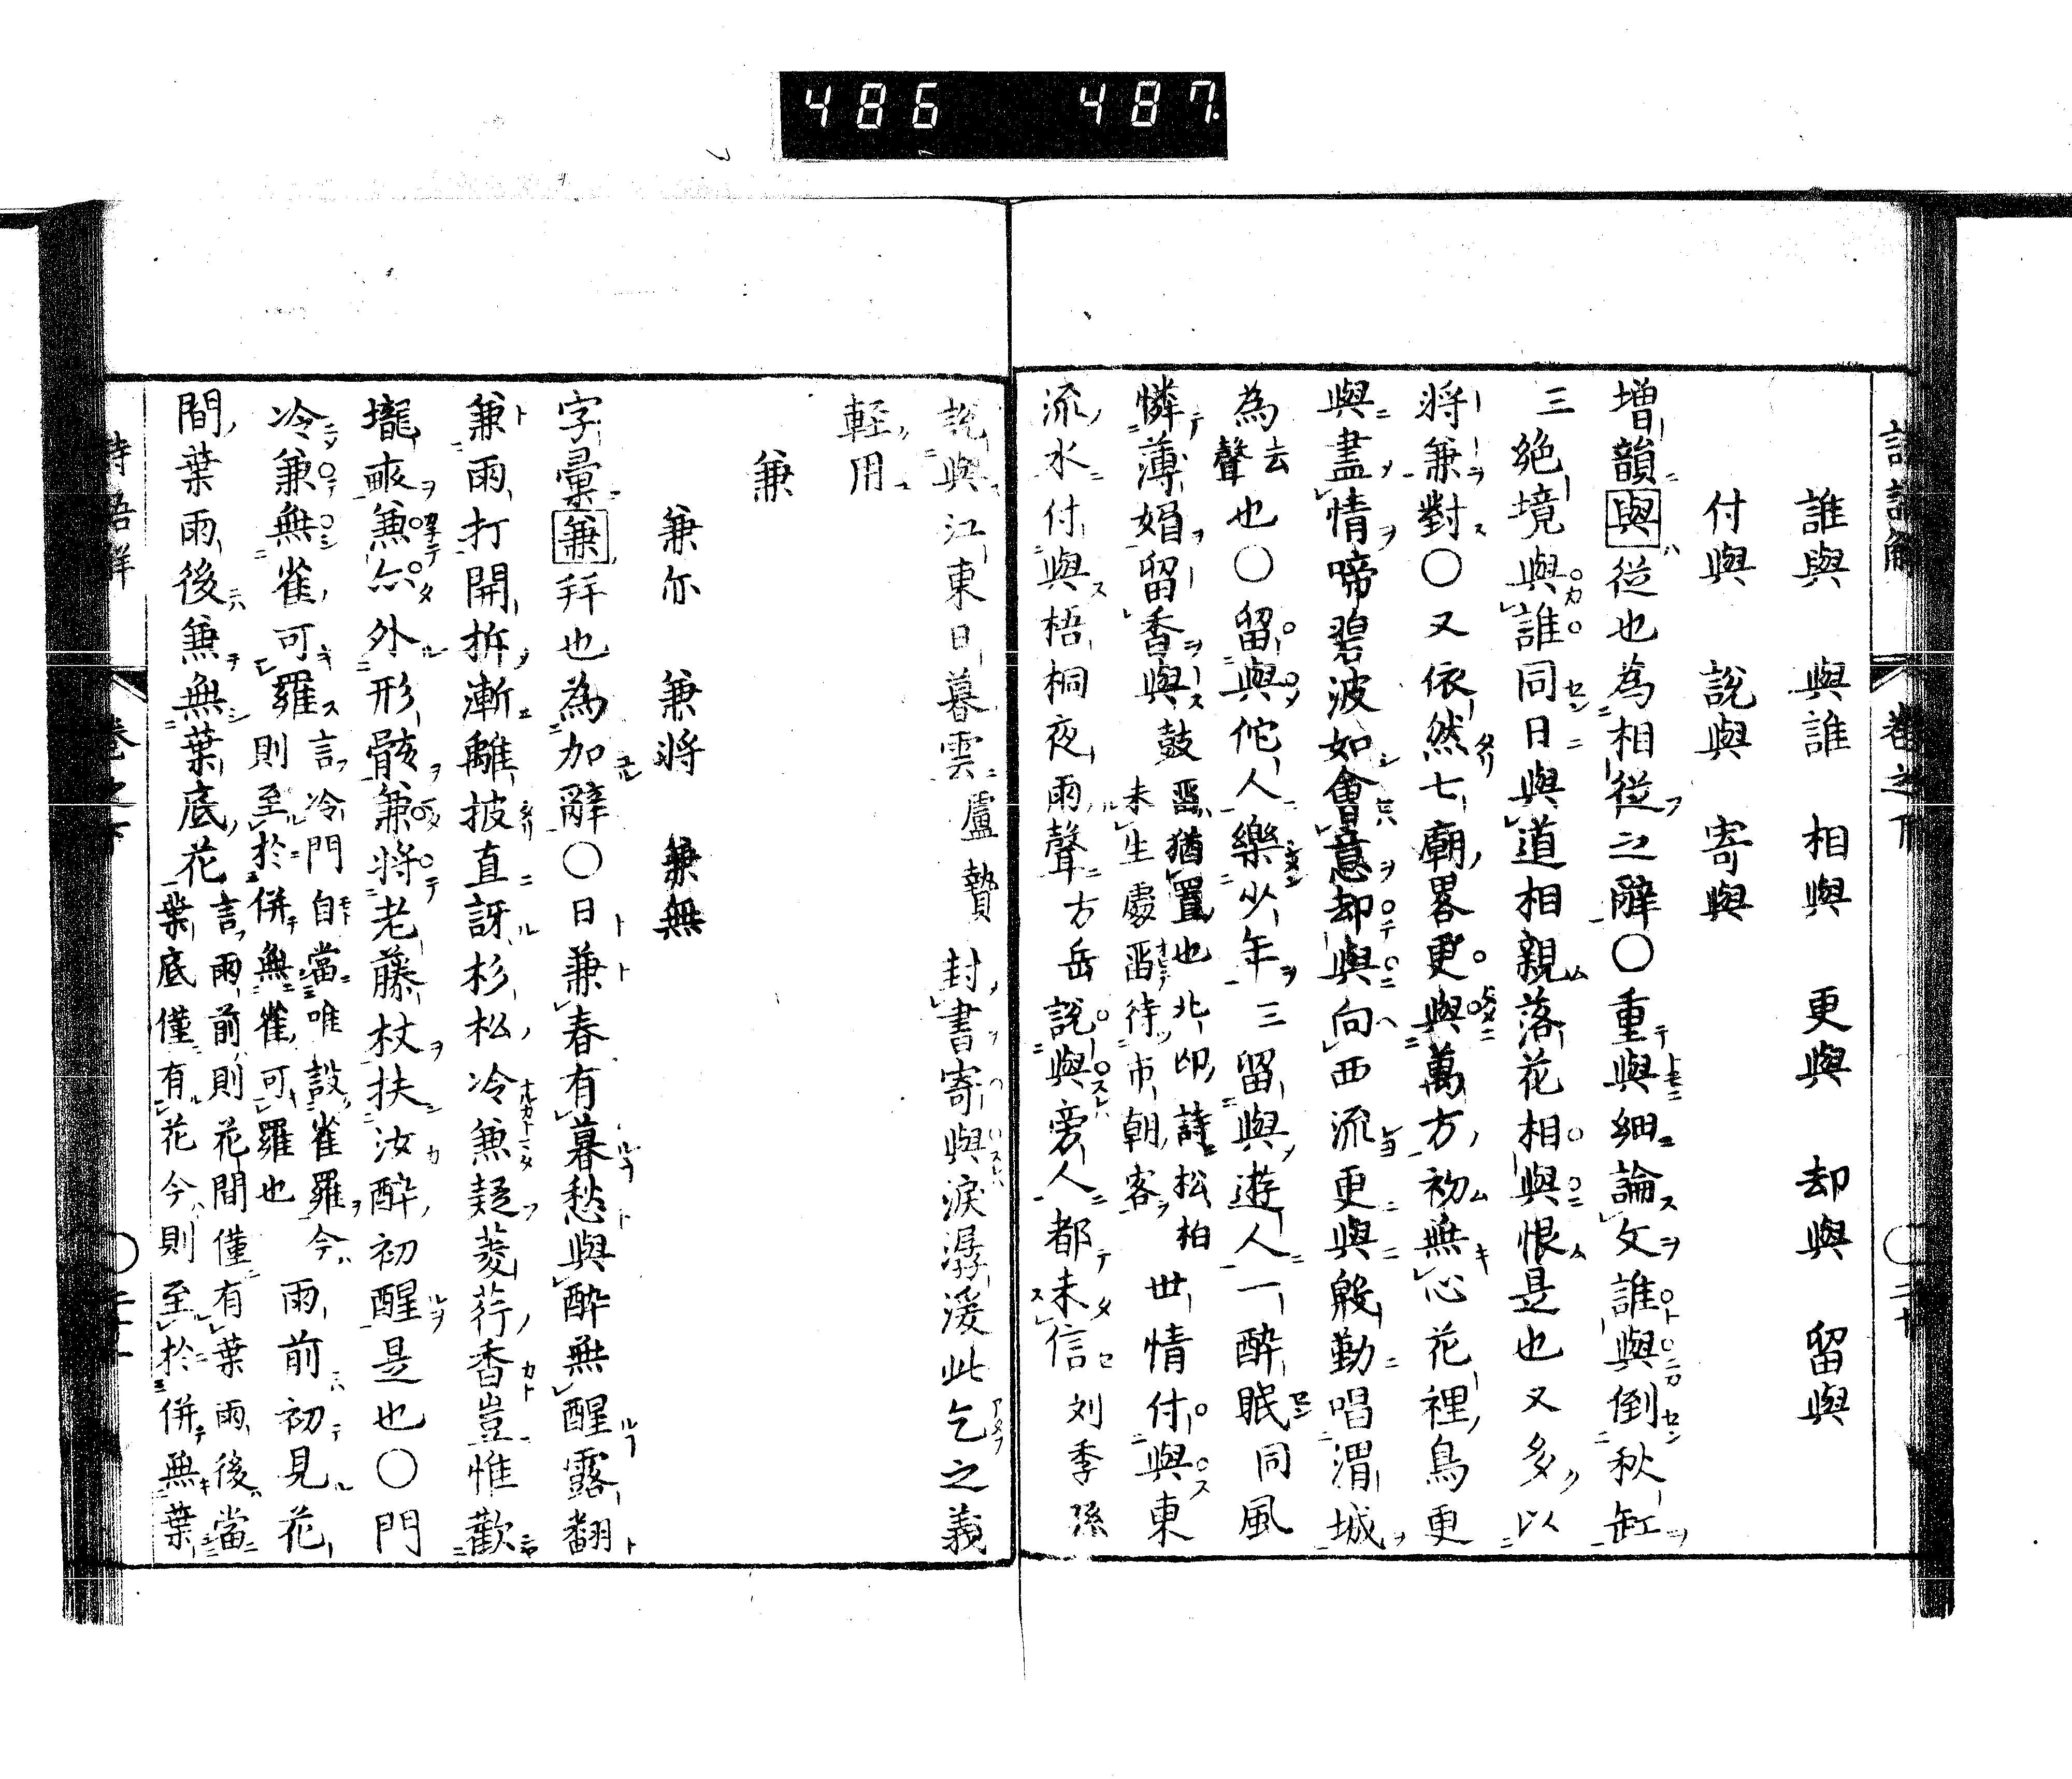 486 487
誰與 與誰 相與 更與 却與 留與
付與 說與 寄與
増韻與從也為相從之辭○重與細論文誰與倒秋缸
三絶境與誰同日與道相親落花相與恨是也又多以
將兼對○又依然七廟畧更與萬方初無心花裡鳥更
與盡情啼碧波如會意却與向西流更與殷勤唱渭城
為去聲也○留與佗人樂少年三留與遊人一醉眠同風
憐薄媚留香與鼓畱猶置也北卬詩松柏未生處畱待市朝客世情付與東
流水付與梧桐夜雨聲方岳說與旁人都未信刘季孫
說與江東日暮雲盧贄封書寄與淚潺湲此乞之義
輕用
兼
兼尓 兼將 兼無
字彙兼拜也為加辭○日兼春有暮愁與醉無醒露翻
兼雨打開拆漸離披直訝杉松冷兼疑菱荇香豈惟歡
壠畞兼尓外形骸兼將老藤杖扶汝醉初醒是也○門
冷兼無雀可羅言冷門自當唯設雀羅今則至於併無雀可羅也雨前初見花
間葉雨後兼無葉底花言雨前則花間僅有葉雨後當葉底僅有花今則至於併無葉
詩語解 卷之下 二十
詩語解 卷之下 二十一